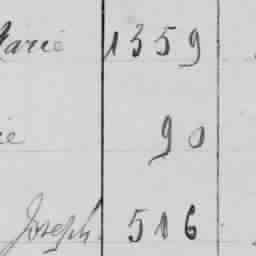 Marie 1359
ie 90
Joseph 516